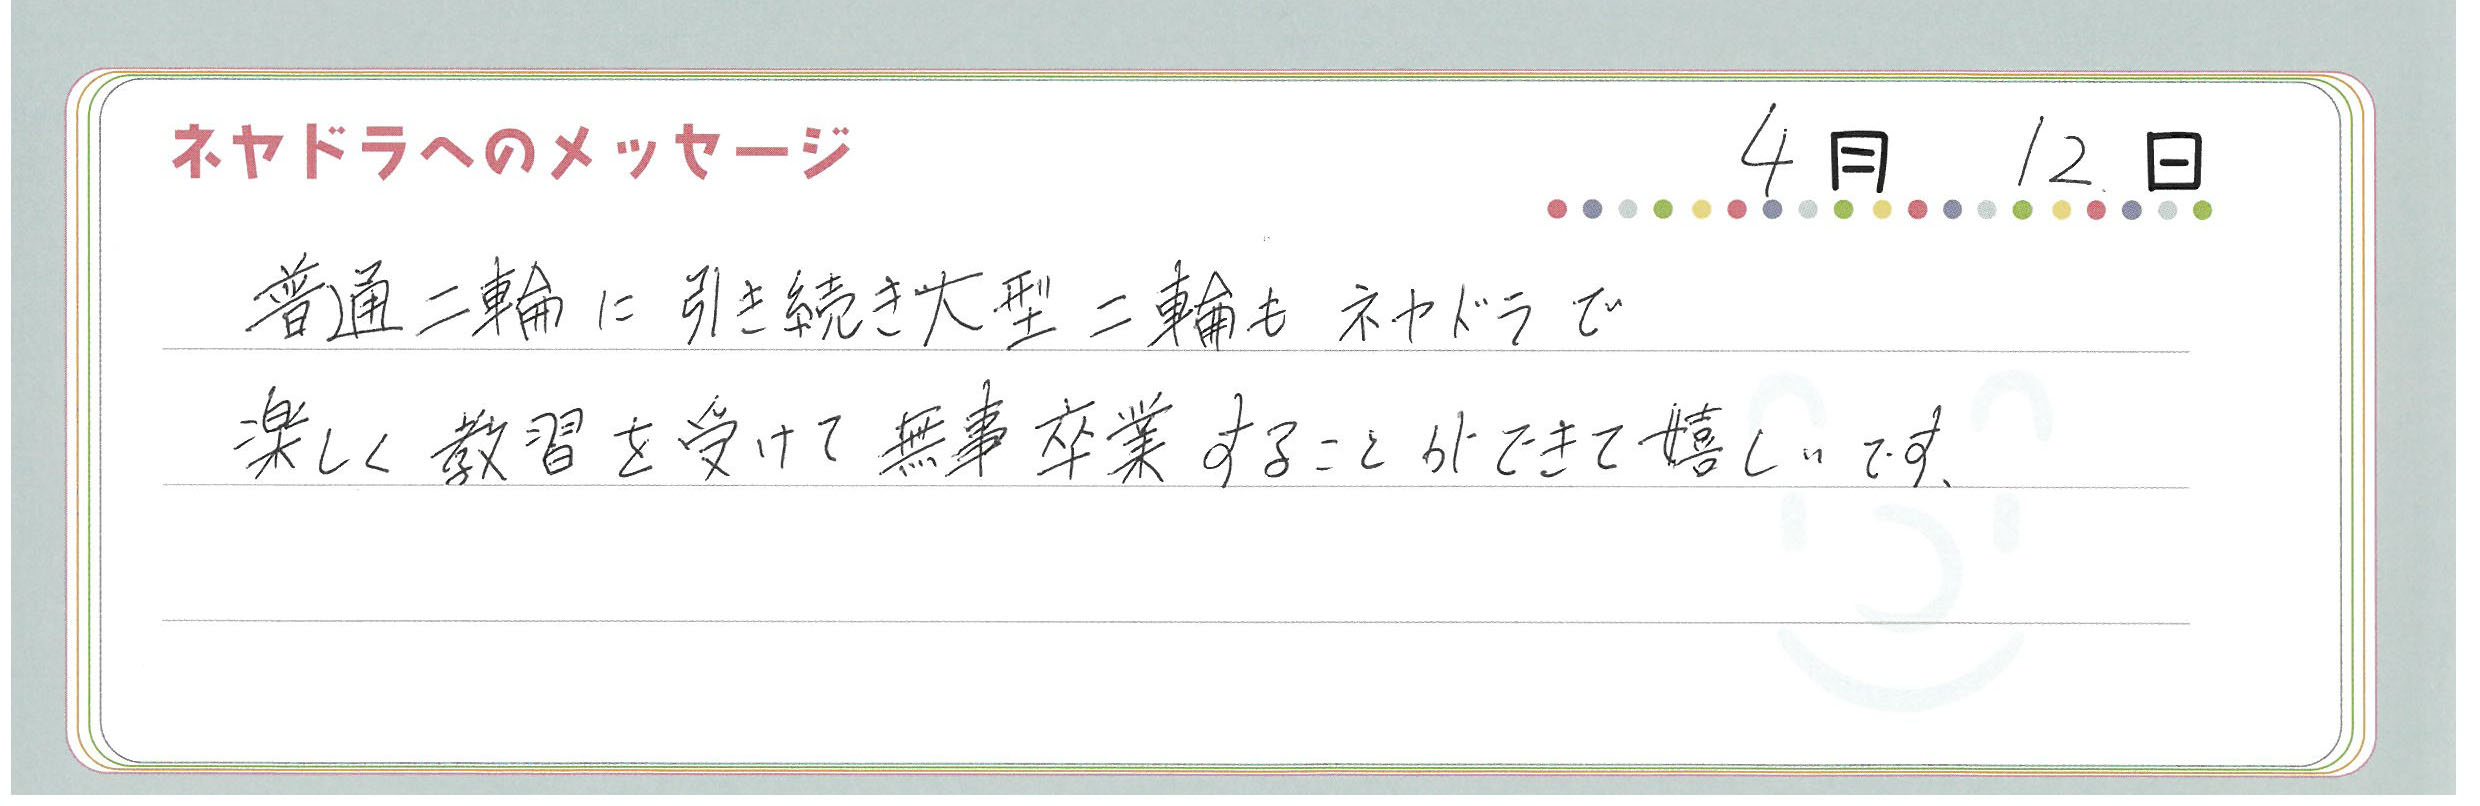 ネヤドラへのメッセージ
4月 12日
普通二輪に引き続き大型二輪もネヤドラで
楽しく教習を受けて無事卒業することができて嬉しいです、